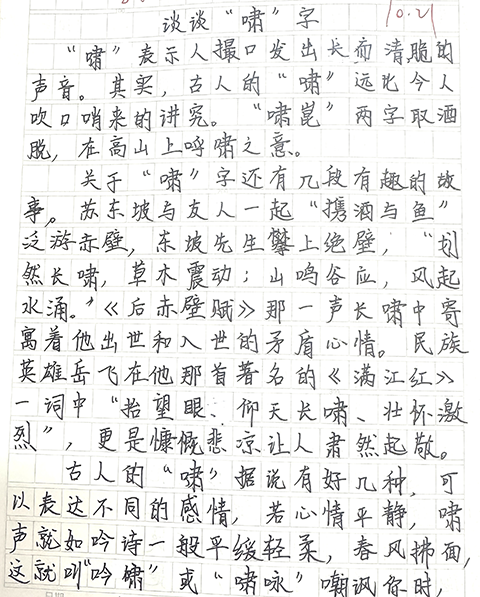 谈谈“啸”字
10.21
“啸”表示人撮口发出长而清脆的
声音。其实,古人的“啸”远比今人
吹口哨来的讲究。“啸崑”两字取洒
脱,在高山上呼啸之意。
关于“啸”字还有几段有趣的故
事。苏东坡与友人一起“携酒与鱼”
泛游赤壁,东坡先生攀上绝壁,“划
然长啸,草木震动;山鸣谷应,风起
水涌。”《后赤壁赋》那一声长啸中寄
寓着他出世和入世的矛盾心情。民族
英雄岳飞在他那首著名的《满江红》
一词中“抬望眼、仰天长啸、壮怀激
烈”,更是慷慨悲凉让人肃然起敬。
古人的“啸”据说有好几种,可
以表达不同的感情,若心情平静,啸
声就如吟诗一般平缓轻柔,春风拂面,
这就叫“吟啸”或“啸咏”嘲讽你时,